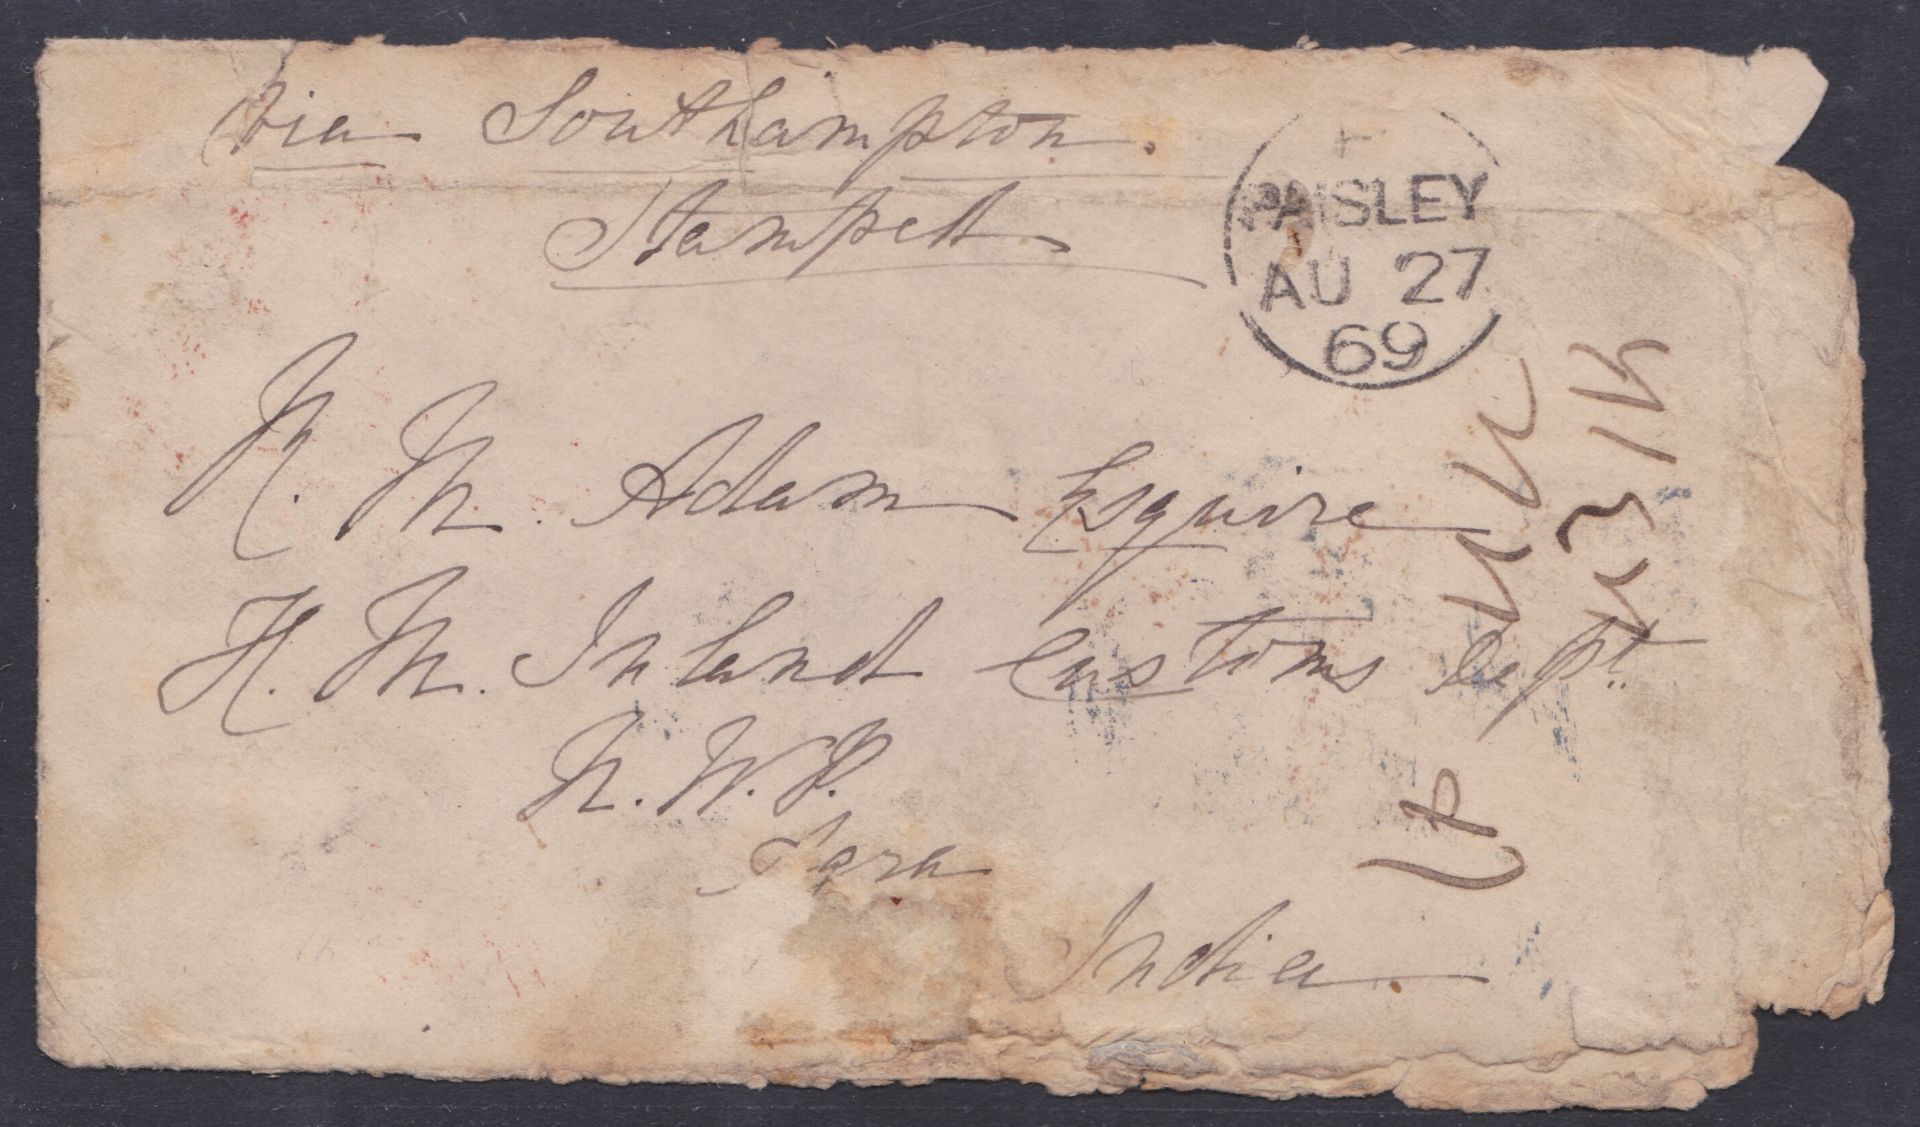 Via Southampton.
Stamped
PAISLEY
AU 27
69
R. M. Adam Esquire
H. M. Inland Customs Dept.
N. W. P.
Agra
India